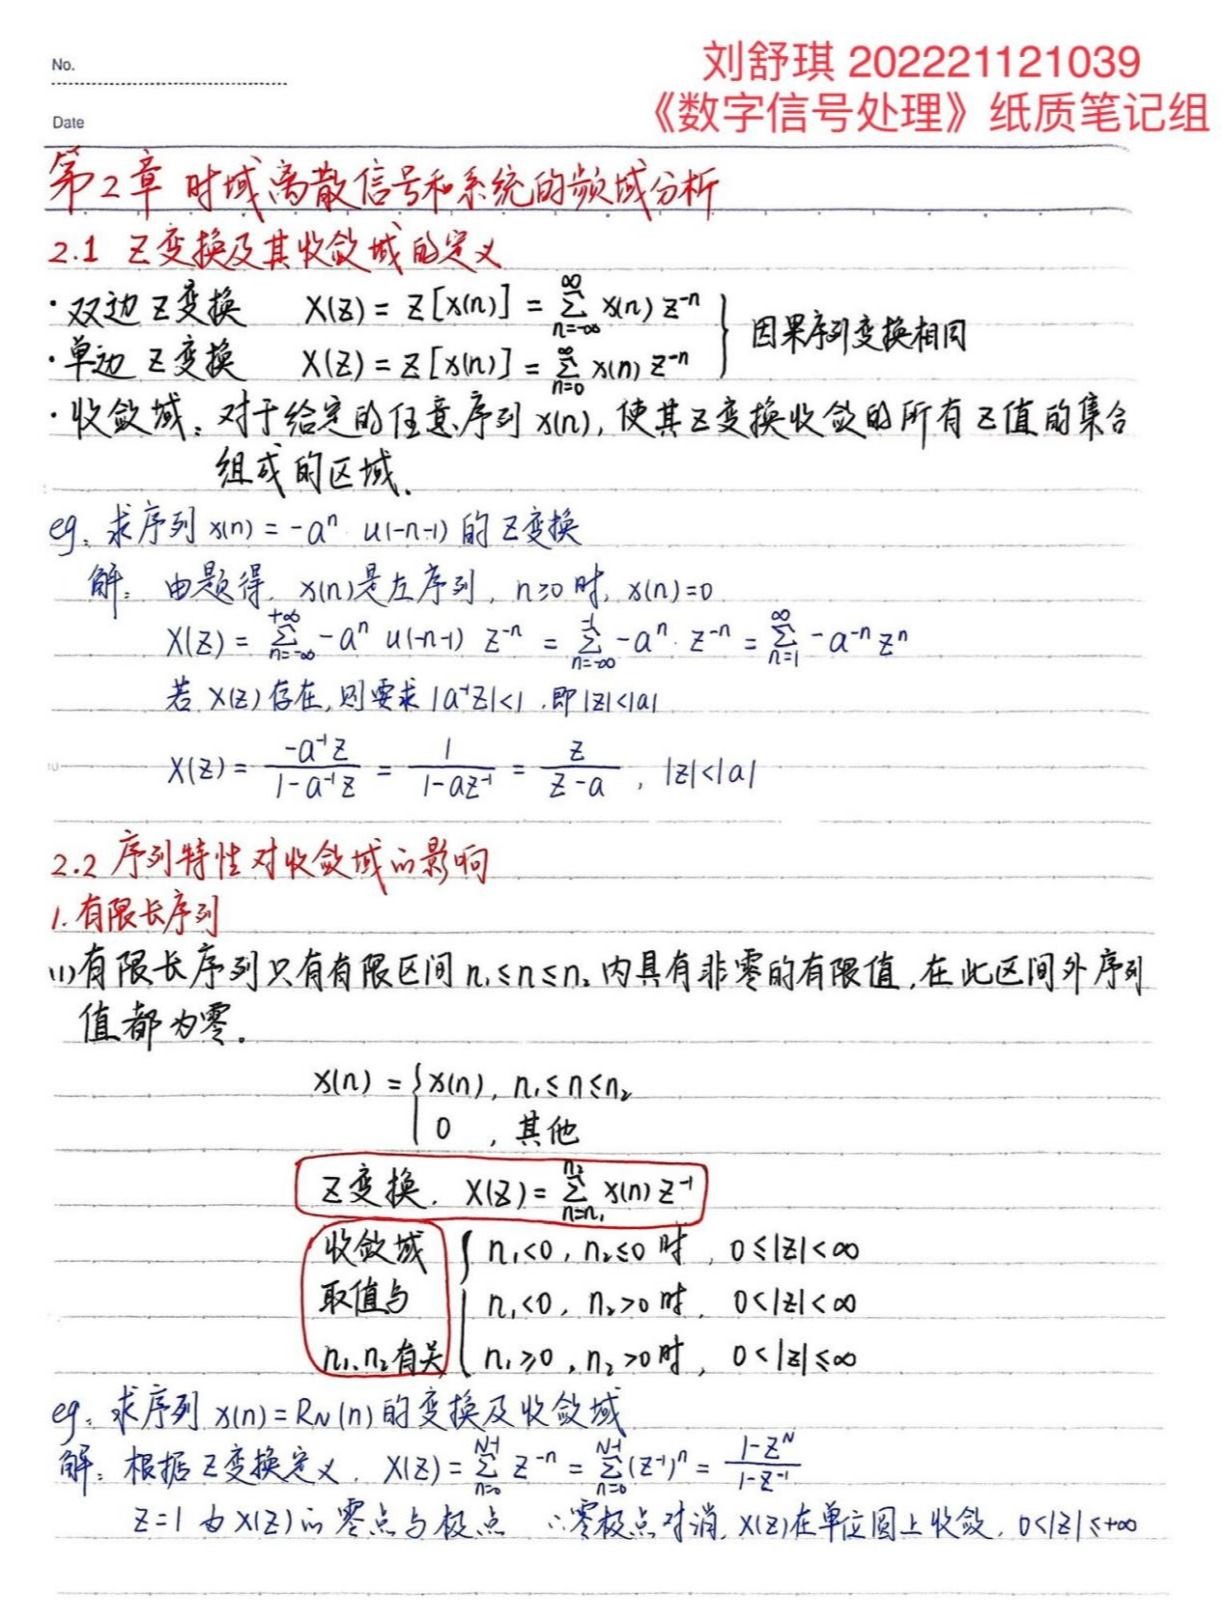 No.
刘舒琪 202221121039
《数字信号处理》纸质笔记组
Date
第2章 时域离散信号和系统的频域分析
2.1 Z变换及其收敛域的定义
·双边Z变换 X(Z) = Z[x(n)] = ∑_{n=-∞}^{∞} x(n) z^{-n}
·单边Z变换 X(Z) = Z[x(n)] = ∑_{n=0}^{∞} x(n) z^{-n} } 因果序列变换相同
·收敛域:对于给定的任意序列x(n),使其Z变换收敛的所有Z值的集合
组成的区域.
eg. 求序列 x(n) = -a^n · u(-n-1) 的Z变换
解: 由题得, x(n)是左序列, n≥0时, x(n)=0
X(Z) = ∑_{n=-∞}^{+∞} -a^n u(-n-1) z^{-n} = ∑_{n=-∞}^{-1} -a^n · z^{-n} = ∑_{n=1}^{∞} -a^{-n} z^n
若X(Z)存在,则要求 |a^{-1}z|<1 ,即|z|<|a|
X(Z) = \frac{-a^{-1}z}{1-a^{-1}z} = \frac{1}{1-az^{-1}} = \frac{z}{z-a} , |z|<|a|
2.2 序列特性对收敛域的影响
1.有限长序列
(1)有限长序列只有有限区间n₁≤n≤n₂内具有非零的有限值,在此区间外序列
值都为零.
x(n) = { x(n), n₁≤n≤n₂
0 , 其他
Z变换. X(Z) = ∑_{n=n₁}^{n₂} x(n) z^{-1}
收敛域 { n₁<0, n₂≤0时, 0≤|z|<∞
取值与 n₁<0, n₂>0时, 0<|z|<∞
n₁、n₂有关 n₁≥0, n₂>0时, 0<|z|≤∞
eg. 求序列 x(n)=R_N(n)的变换及收敛域
解: 根据Z变换定义. X(Z) = ∑_{n=0}^{N-1} z^{-n} = ∑_{n=0}^{N-1} (z^{-1})^n = \frac{1-z^N}{1-z^{-1}}
Z=1为X(Z)的零点与极点 ∴零极点对消, X(Z)在单位圆上收敛. 0<|z|≤+∞